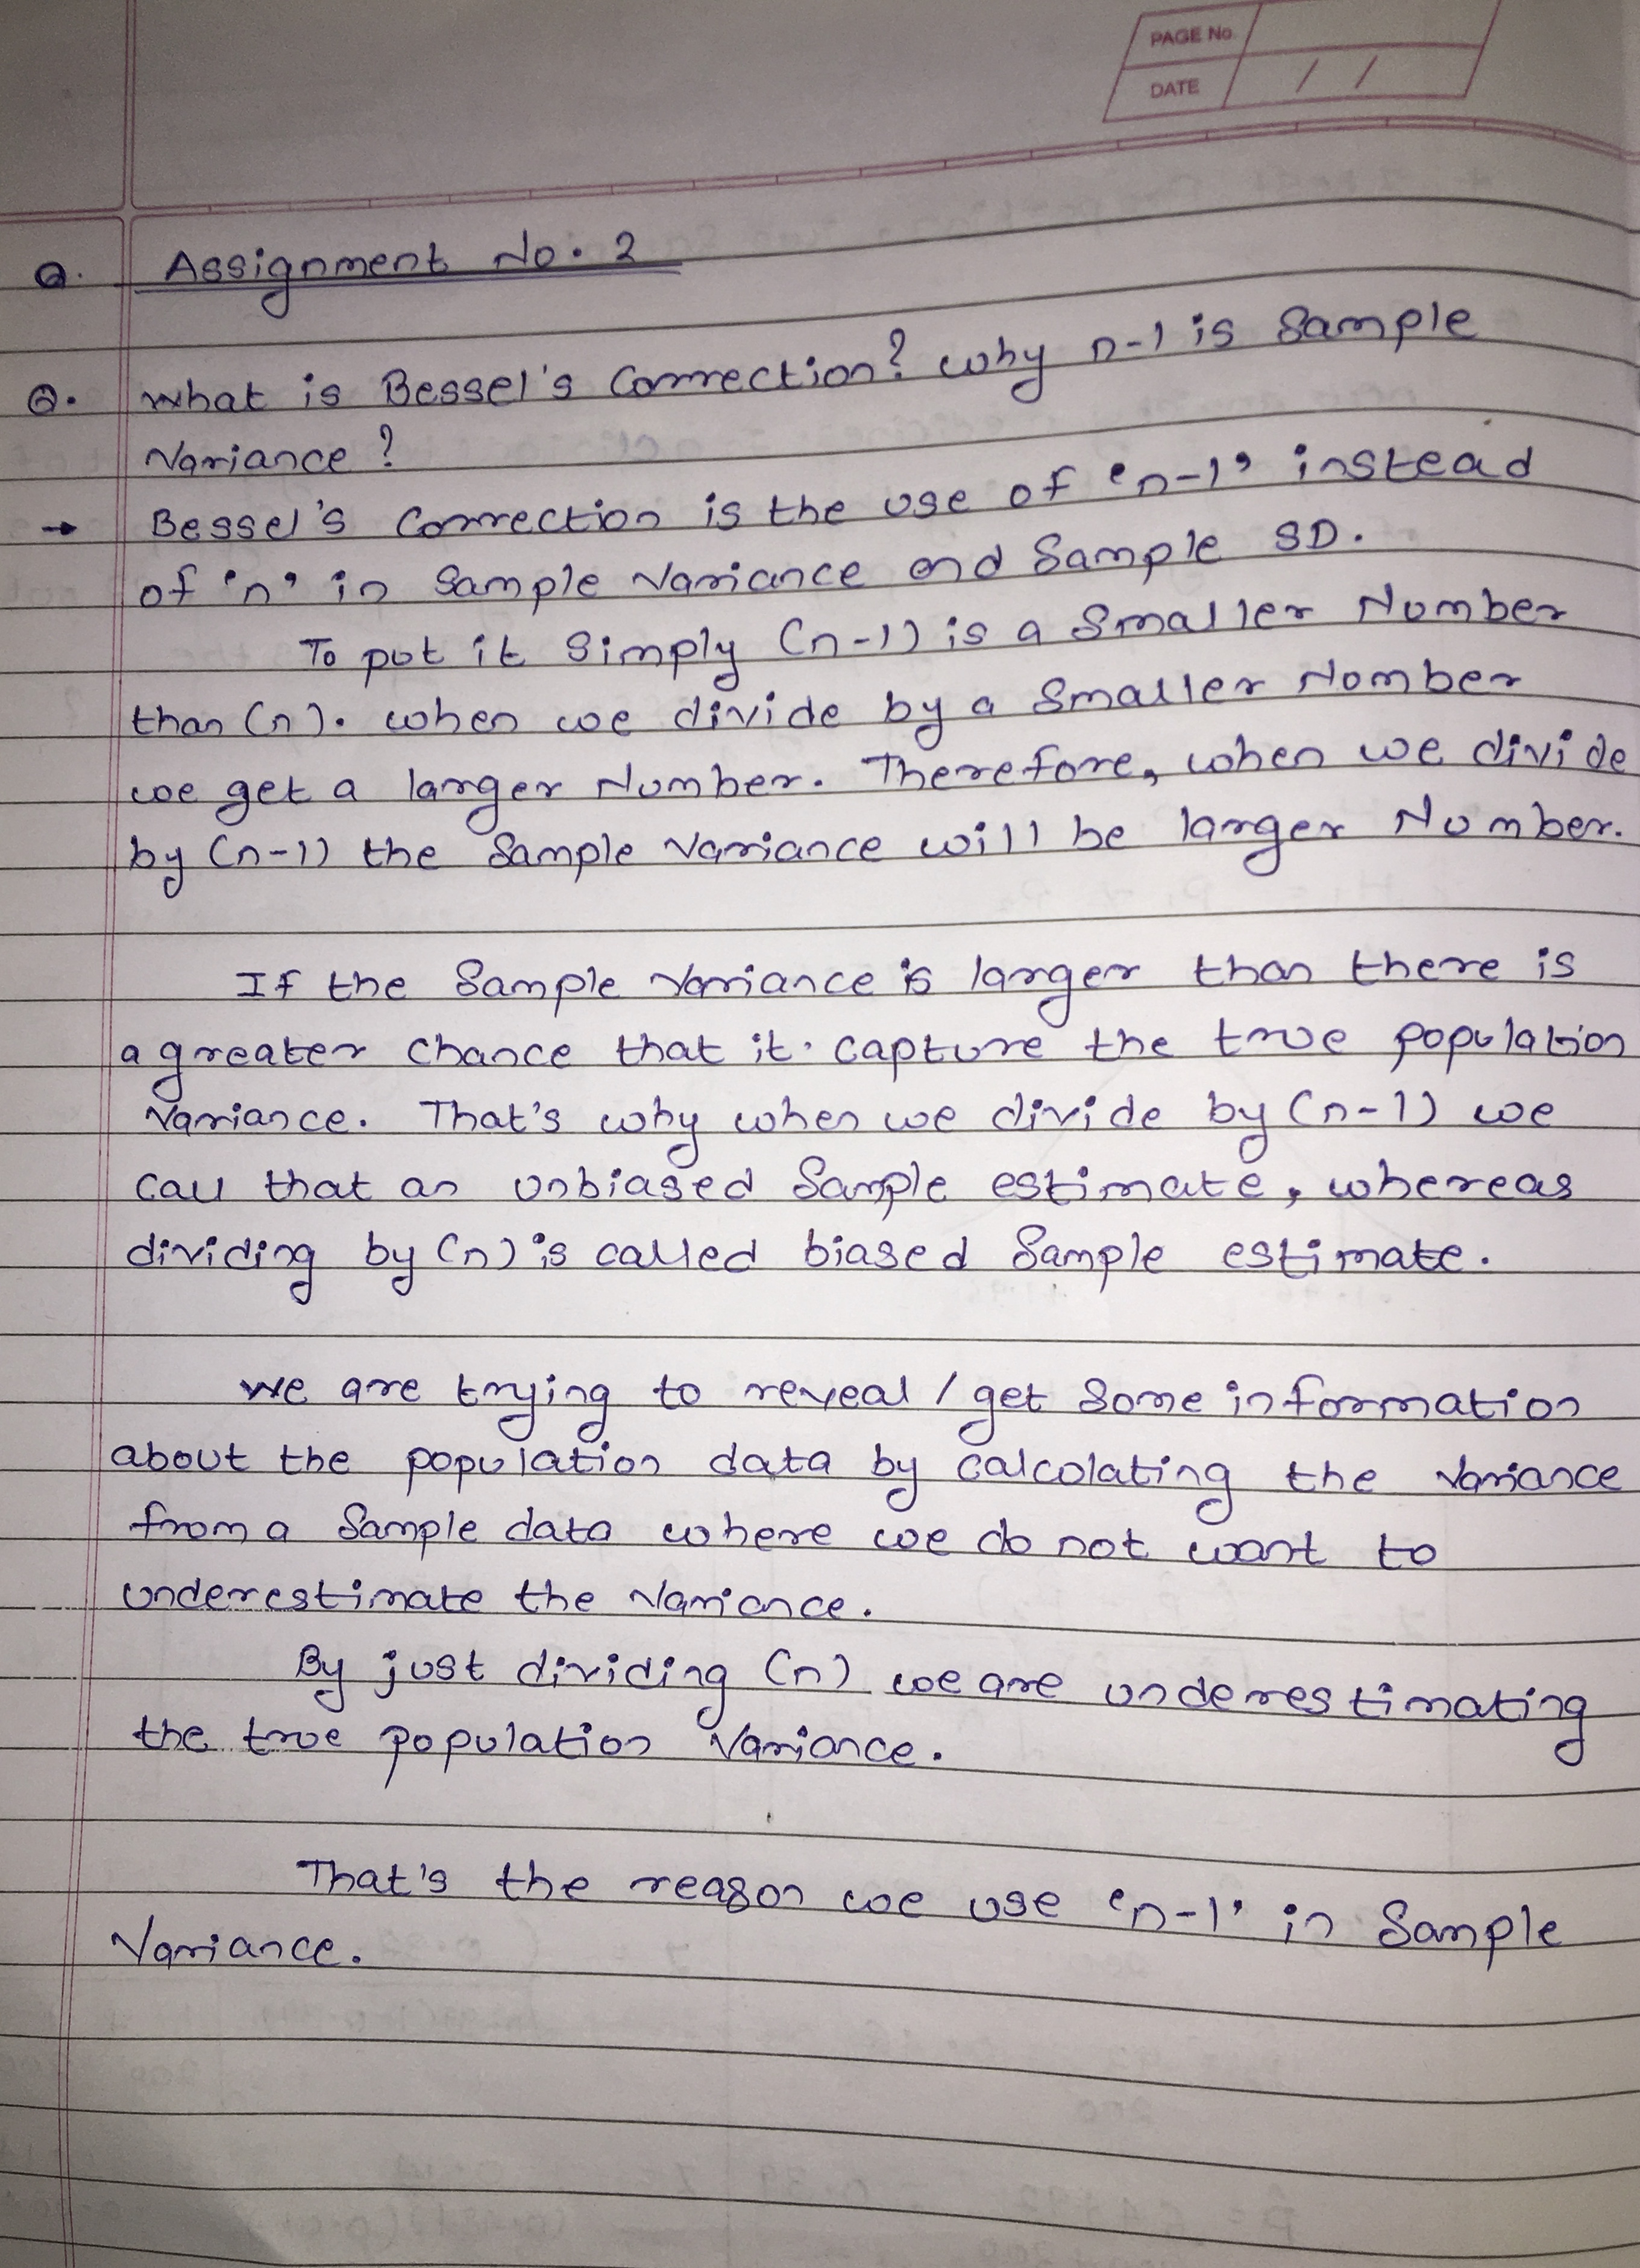 PAGE No.
DATE / /
Q. Assignment No. 2
Q. What is Bessel's Correction? why n-1 is Sample
Variance?
→ Bessel's Correction is the use of 'n-1' instead
of 'n' in Sample Variance and Sample SD.
To put it Simply (n-1) is a Smaller Number
than (n). when we divide by a Smaller Number
we get a larger Number. Therefore, when we divide
by (n-1) the Sample Variance will be larger Number.
If the Sample Variance is larger than there is
a greater chance that it. capture the true population
Variance. That's why when we divide by (n-1) we
call that an unbiased Sample estimate, whereas
dividing by (n) is called biased Sample estimate.
We are trying to reveal / get Some information
about the population data by calculating the Variance
from a Sample data where we do not want to
underestimate the Variance.
By just dividing (n) we are underestimating
the true population Variance.
That's the reason we use 'n-1' in Sample
Variance.